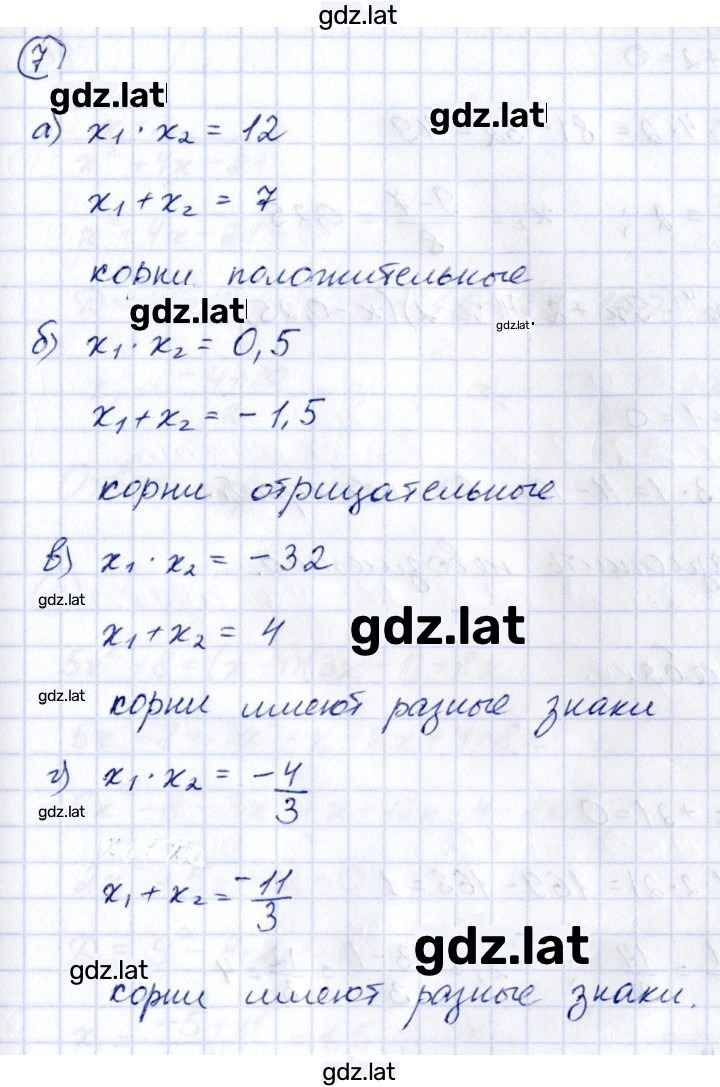 gdz.lat
7
gdz.lat
gdz.lat
а) x₁ · x₂ = 12
x₁ + x₂ = 7
корни положительные
gdz.lat
gdz.lat
б) x₁ · x₂ = 0,5
x₁ + x₂ = - 1,5
корни отрицательные
в) x₁ · x₂ = - 32
gdz.lat
x₁ + x₂ = 4
gdz.lat
gdz.lat
корни имеют разные знаки
г) x₁ · x₂ = -4/3
gdz.lat
x₁ + x₂ = -11/3
gdz.lat
gdz.lat
корни имеют разные знаки.
gdz.lat